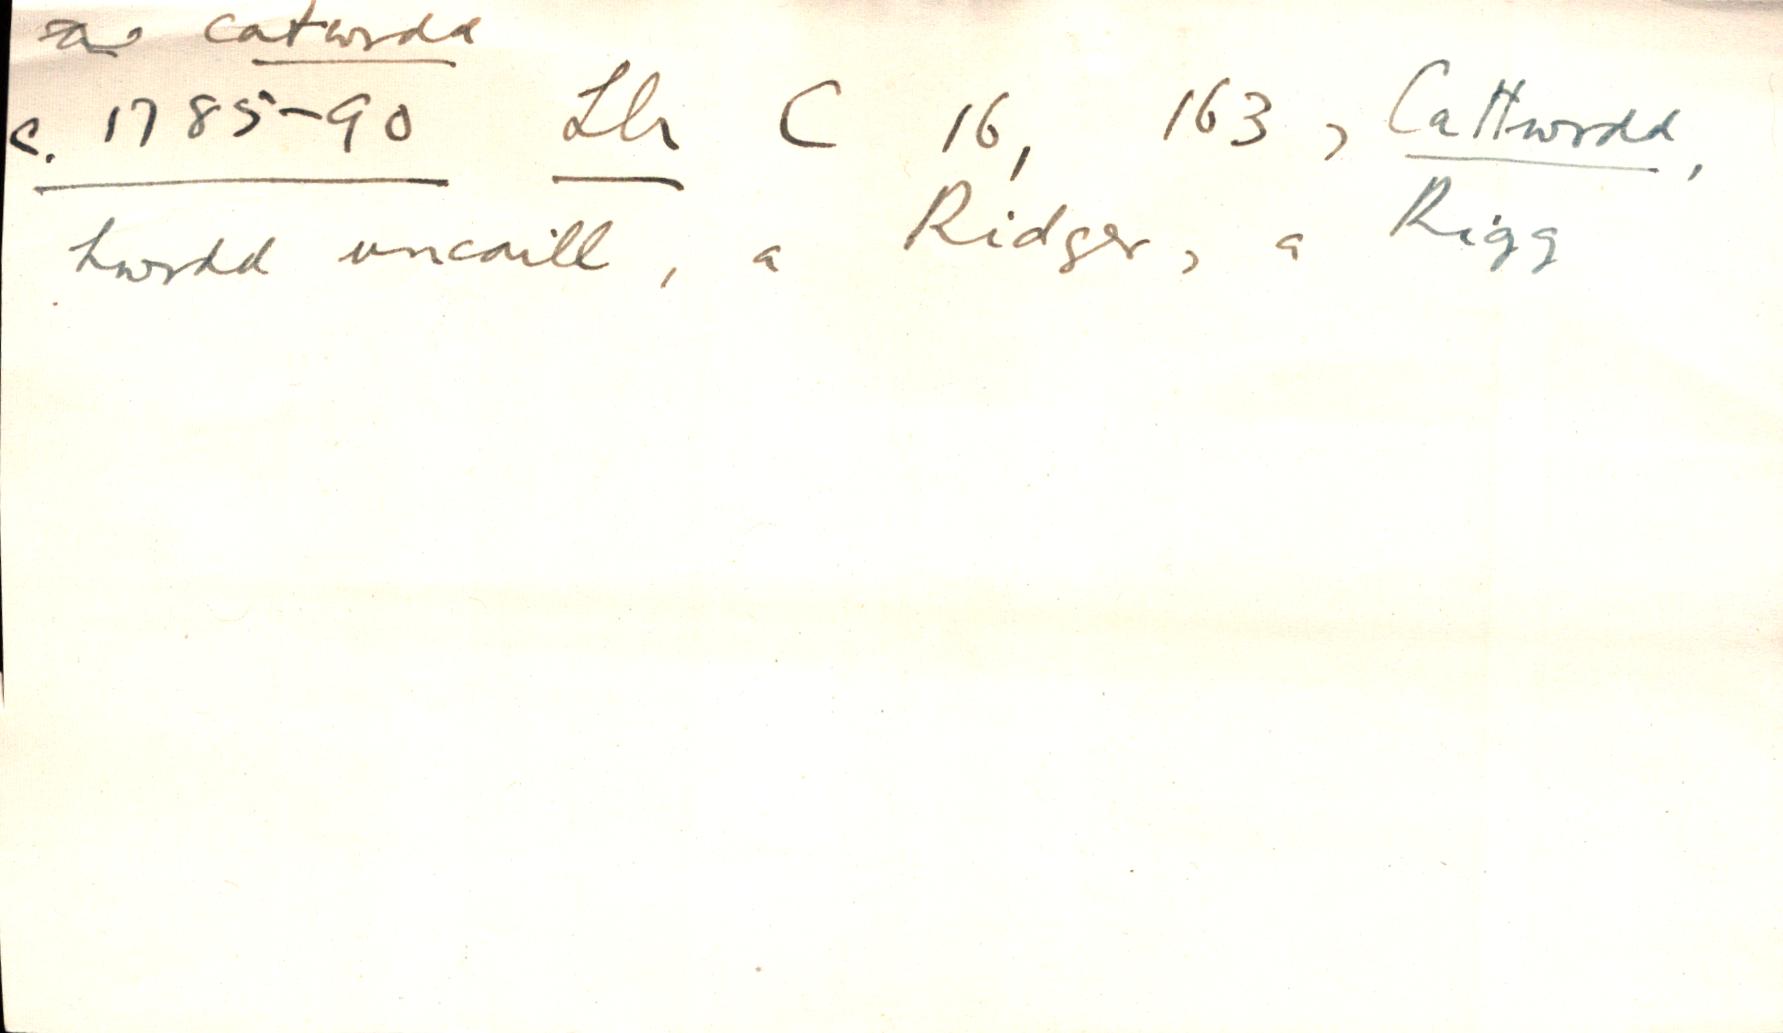 catwrdd
c. 1785-90 Llr C 16, 163, Cattwrdd,
hwrdd uncaill, a Ridger, a Rigg